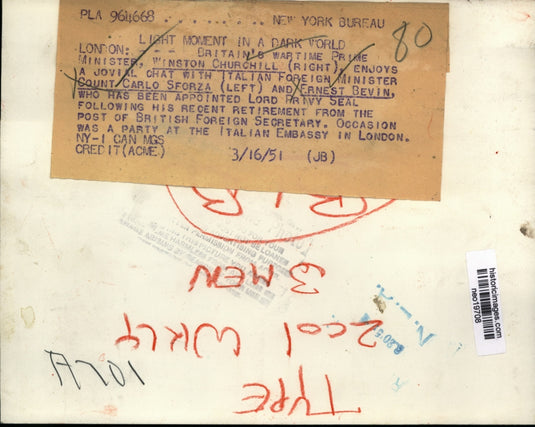 PLA 964668 . . . . . . . . . NEW YORK BUREAU
LIGHT MOMENT IN A DARK WORLD
LONDON: - - - BRITAIN'S WARTIME PRIME
MINISTER, WINSTON CHURCHILL (RIGHT) ENJOYS
A JOVIAL CHAT WITH ITALIAN FOREIGN MINISTER
COUNT CARLO SFORZA (LEFT) AND ERNEST BEVIN,
WHO HAS BEEN APPOINTED LORD PRIVY SEAL
FOLLOWING HIS RECENT RETIREMENT FROM THE
POST OF BRITISH FOREIGN SECRETARY. OCCASION
WAS A PARTY AT THE ITALIAN EMBASSY IN LONDON.
NY-I CAN MGS
CREDIT (ACME) 3/16/51 (JB)
80
3 MEN
2 COL WKLY
TYPE
historicimages.com
neo19708